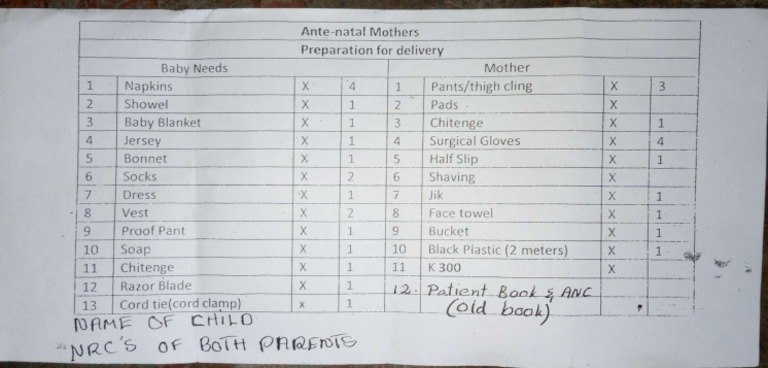 Ante-natal Mothers
Preparation for delivery
Baby Needs Mother
1 Napkins X 4 1 Pants/thigh cling X 3
2 Showel X 1 2 Pads X
3 Baby Blanket X 1 3 Chitenge X 1
4 Jersey X 1 4 Surgical Gloves X 4
5 Bonnet X 1 5 Half Slip X 1
6 Socks X 2 6 Shaving X
7 Dress X 1 7 Jik X 1
8 Vest X 2 8 Face towel X 1
9 Proof Pant X 1 9 Bucket X 1
10 Soap X 1 10 Black Plastic (2 meters) X 1
11 Chitenge X 1 11 K 300 X
12 Razor Blade X 1 12. Patient Book & ANC
13 Cord tie(cord clamp) x 1 (old book)
NAME OF CHILD
NRC'S OF BOTH PARENTS